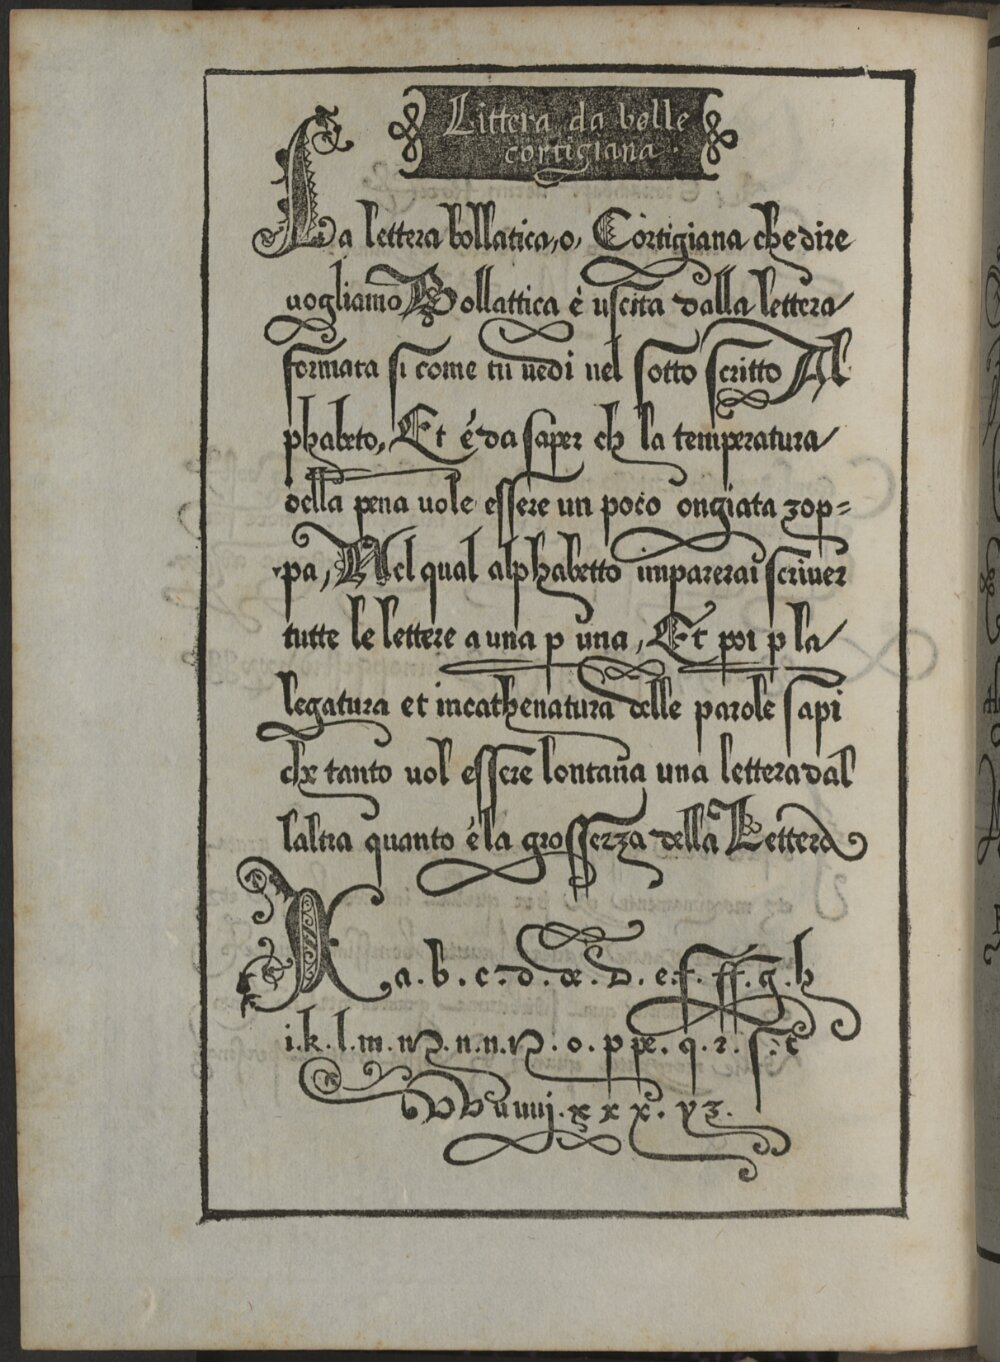 Littera da bolle
cortigiana.
La lettera bollatica, o, Cortigiana che dire
uogliamo Bollattica è uscita dalla lettera
formata si come tu uedi nel sotto scritto Al
phabeto, Et é da saper ch la temperatura
della pena uole essere un poco ongiata zop=
pa, Nel qual alphabetto imparerai scriuer
tutte le lettere a una p una, Et poi p la
legatura et incathenatura delle parole sapi
che tanto uol essere lontana una lettera dal
laltra quanto è la grosserza della Lettera
a.b.c.d.e.f.ff.g.h
i.k.l.m.n.n.n.o.p.q.r.s.t
u.x x x.y z.